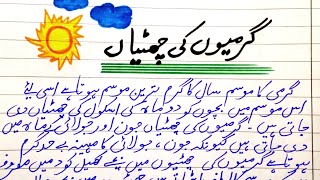 گرمیوں کی چھٹیاں
گرمی کا موسم سال کا گرم ترین موسم ہوتا ہے اسی لیے
اس موسم میں بچوں کو دو ماہ کی اسکول کی چھٹیاں دی
جاتی ہیں۔ گرمیوں کی چھٹیاں جون اور جولائی کے ماہ میں
دی جاتی ہیں کیونکہ جون، جولائی کا مہینہ بے حد گرم
ہوتا ہے گرمیوں کی چھٹیوں میں بچے کھیل کود میں مصروف